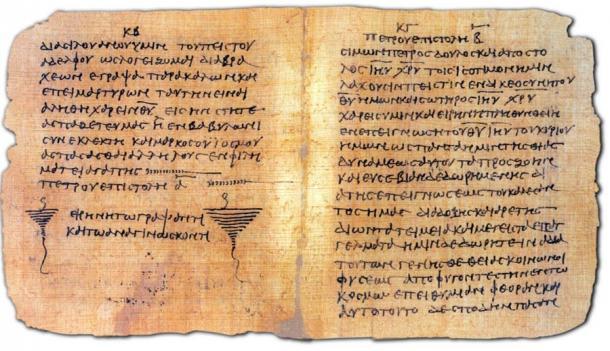 ΚΒ
ΔΙΑ ΣΙΛΟΥΑΝΟΥ ΥΜΙΝ ΤΟΥ ΠΙΣΤΟΥ
ΑΔΕΛΦΟΥ ΩΣ ΛΟΓΕΙΖΟΜΑΙ ΔΙΑ ΒΡΑ
ΧΕΩΝ ΕΓΡΑΨΑ ΠΑΡΑΚΑΛΩΝ ΚΑΙ
ΕΠΕΙΜΑΡΤΥΡΩΝ ΤΑΥΤΗΝ ΕΙΝΑΙ
ΑΛΗΘΗ ΧΑΡΕΙΝ Θ̅Υ̅ ΕΙΣ ΗΝ ΣΤΗΤΕ
ΑΣΠΑΖΕΤΕ ΥΜΑΣ Η ΕΝ ΒΑΒΥΛΩΝΙ
ΣΥΝΕΚΛΕΚΤΗ ΚΑΙ ΜΑΡΚΟΣ Ο ΥΙΟΣ ΜΟΥ
ΑΣΠΑΣΑΣΘΕ ΑΛΛΗΛΟΥΣ ΕΝ ΦΙΛΗ
ΜΑΤΕΙ ΑΓΑΠΗΣ
ΠΕΤΡΟΥ ΕΠΙΣΤΟΛΗ Α̅
ΕΙΡΗΝΗ ΤΩ ΓΡΑΨΑΝΤΙ
ΚΑΙ ΤΩ ΑΝΑΓΙΝΩΣΚΟΝΤΙ
ΚΓ
ΠΕΤΡΟΥ ΕΠΙΣΤΟΛΗ Β̅
ΣΙΜΩΝ ΠΕΤΡΟΣ ΔΟΥΛΟΣ ΚΑΙ ΑΠΟΣΤΟ
ΛΟΣ Ι̅Η̅Υ̅ Χ̅Ρ̅Υ̅ ΤΟΙΣ ΙΣΟΤΙΜΟΝ ΗΜΙΝ
ΛΑΧΟΥΣΙΝ ΠΙΣΤΙΝ ΕΝ ΔΙΚΕΟΣΥΝΗ ΤΟΥ
Θ̅Υ̅ ΗΜΩΝ ΚΑΙ ΣΩΤΗΡΟΣ Ι̅Η̅Υ̅ Χ̅Ρ̅Υ̅
ΧΑΡΙΣ ΥΜΙΝ ΚΑΙ ΕΙΡΗΝΗ ΠΛΗΘΥΝΘΕΙΗ
ΕΝ ΕΠΕΙΓΝΩΣΙ ΤΟΥ Θ̅Υ̅ Ι̅Η̅Υ̅ ΤΟΥ ΚΥΡΙΟΥ
ΗΜΩΝ ΩΣ ΠΑΝΤΑ ΗΜΙΝ ΤΗΣ ΘΕΙΑΣ
ΔΥΝΑΜΕΩΣ ΑΥΤΟΥ ΤΑ ΠΡΟΣ ΖΩΗΝ
ΚΑΙ ΕΥΣΕΒΙΑΝ ΔΕΔΩΡΗΜΕΝΗΣ ΔΙ
Α ΤΗΣ ΕΠΕΙΓΝΩΣΕΩΣ ΤΟΥ ΚΑΛΕΣΑΝ
ΤΟΣ ΗΜΑΣ ΔΙΑ ΔΟΞΗΣ ΚΑΙ ΑΡΕΤΗΣ
ΔΙ ΩΝ ΤΑ ΤΕΙΜΕΙΑ ΚΑΙ ΜΕΓΕΙΣΤΑ ΕΠΑΓ
ΓΕΛΜΑΤΑ ΗΜΙΝ ΔΕΔΩΡΗΤΕ ΙΝΑ ΔΙΑ
ΤΟΥΤΩΝ ΓΕΝΗΣΘΕ ΘΕΙΑΣ ΚΟΙΝΩΝΟΙ
ΦΥΣΕΩΣ ΑΠΟΦΥΓΟΝΤΕΣ ΤΗΝ ΕΝ ΤΩ
ΚΟΣΜΩ ΕΠΕΙΘΥΜΙΑΝ ΦΘΟΡΑΣ ΚΑΙ
ΑΥΤΟ ΤΟΥΤΟ ΔΕ ΣΠΟΥΔΗΝ ΠΑΣΑΝ